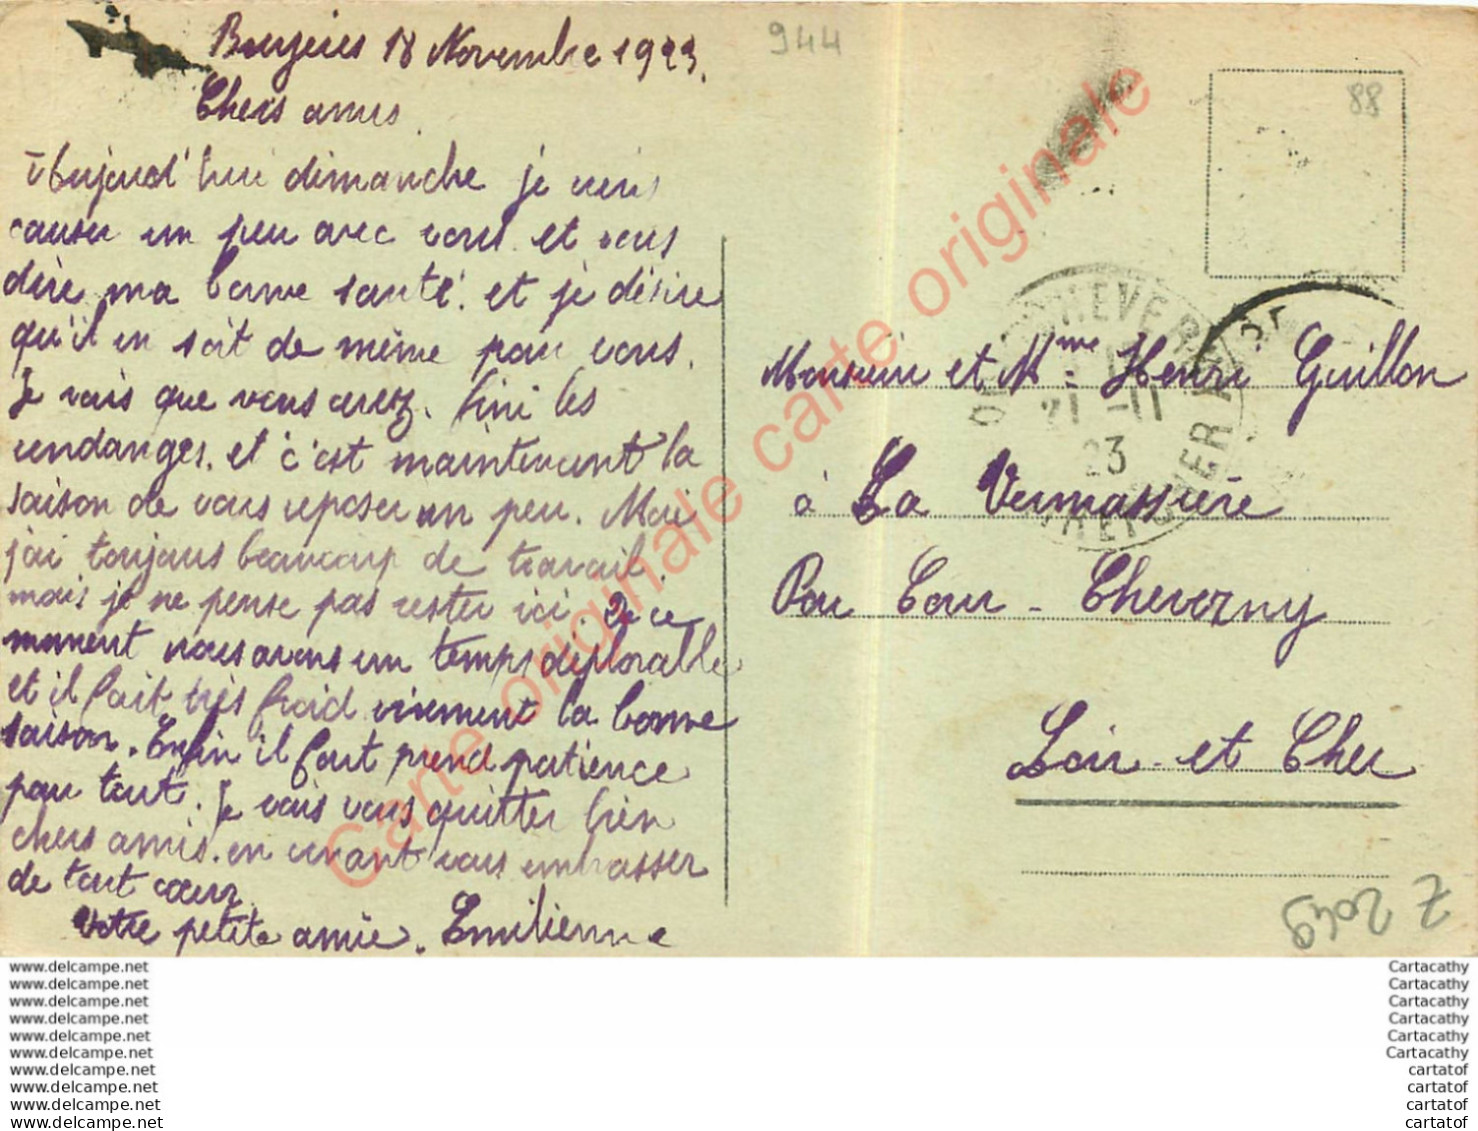 Bruyères 18 Novembre 1923.
Chers amis.
Aujourd'hui dimanche je viens
causer un peu avec vous et vous
dire ma bonne santé. et je désire
qu'il en soit de même pour vous.
Je vois que vous avez fini les
vendanges. et c'est maintenant la
saison de vous reposer un peu. Moi
j'ai toujours beaucoup de travail.
mais je ne pense pas rester ici. De ce
moment nous avons un temps déplorable
et il fait très froid vivement la bonne
saison. Enfin il faut prend patience
pour tout. Je vais vous quitter bien
chers amis. en venant vous embrasser
de tout cœur
Votre petite amie. Emilienne
944
88
21 -11
23
Monsieur et Mme Henri Guillon
à La Vermassière
Par Cour - Cheverny
Loir et Cher
Z 2049
Carte originale carte originale
Carte originale
www.delcampe.net
www.delcampe.net
www.delcampe.net
www.delcampe.net
www.delcampe.net
www.delcampe.net
www.delcampe.net
www.delcampe.net
www.delcampe.net
www.delcampe.net
Cartacathy
Cartacathy
Cartacathy
Cartacathy
Cartacathy
Cartacathy
cartatof
cartatof
cartatof
cartatof